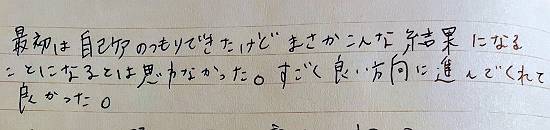 最初は自己ケアのつもりできたけど まさかこんな結果になる
ことになるとは思わなかった。すごく良い方向に進んでくれて
良かった。